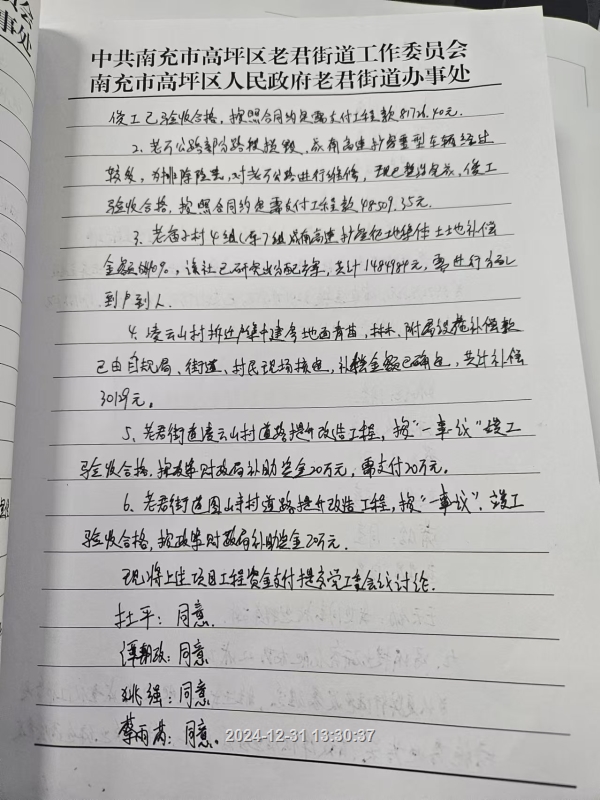 中共南充市高坪区老君街道工作委员会
南充市高坪区人民政府老君街道办事处
竣工已验收合格，按照合同约定需支付工程款81726.40元。
2、老万公路部分路段损毁，成南高速扩容重型车辆经过
较多，为排除隐患，对老万公路进行维修，现已整治完成，竣工
验收合格，按照合同约定需支付工程款48509.35元。
3、老 村4组(原7组)成南高速扩容征地集体土地补偿
金额 %，该社已研究出分配方案，共计1484984元，需进行分配
到户到人。
4、凌云山村拆迁户集中建房地面青苗，林木、附属设施补偿款
已由自规局、街道、村民现场核定，补偿金额已确定，共计补偿
元。
5、老君街道凌云山村道路提升改造工程，按"一事一议"竣工
验收合格，按政策财政局补助资金20万元，需支付20万元。
6、老君街道图山寺村道路提升改造工程，按"一事一议"，竣工
验收合格，按政策财政局补助资金20万元.
现将上述项目工程资金支付提交党工委会议讨论.
杜平：同意.
谭朝政：同意
姚强：同意
蔡雨芮：同意。
2024-12-31 13:30:37